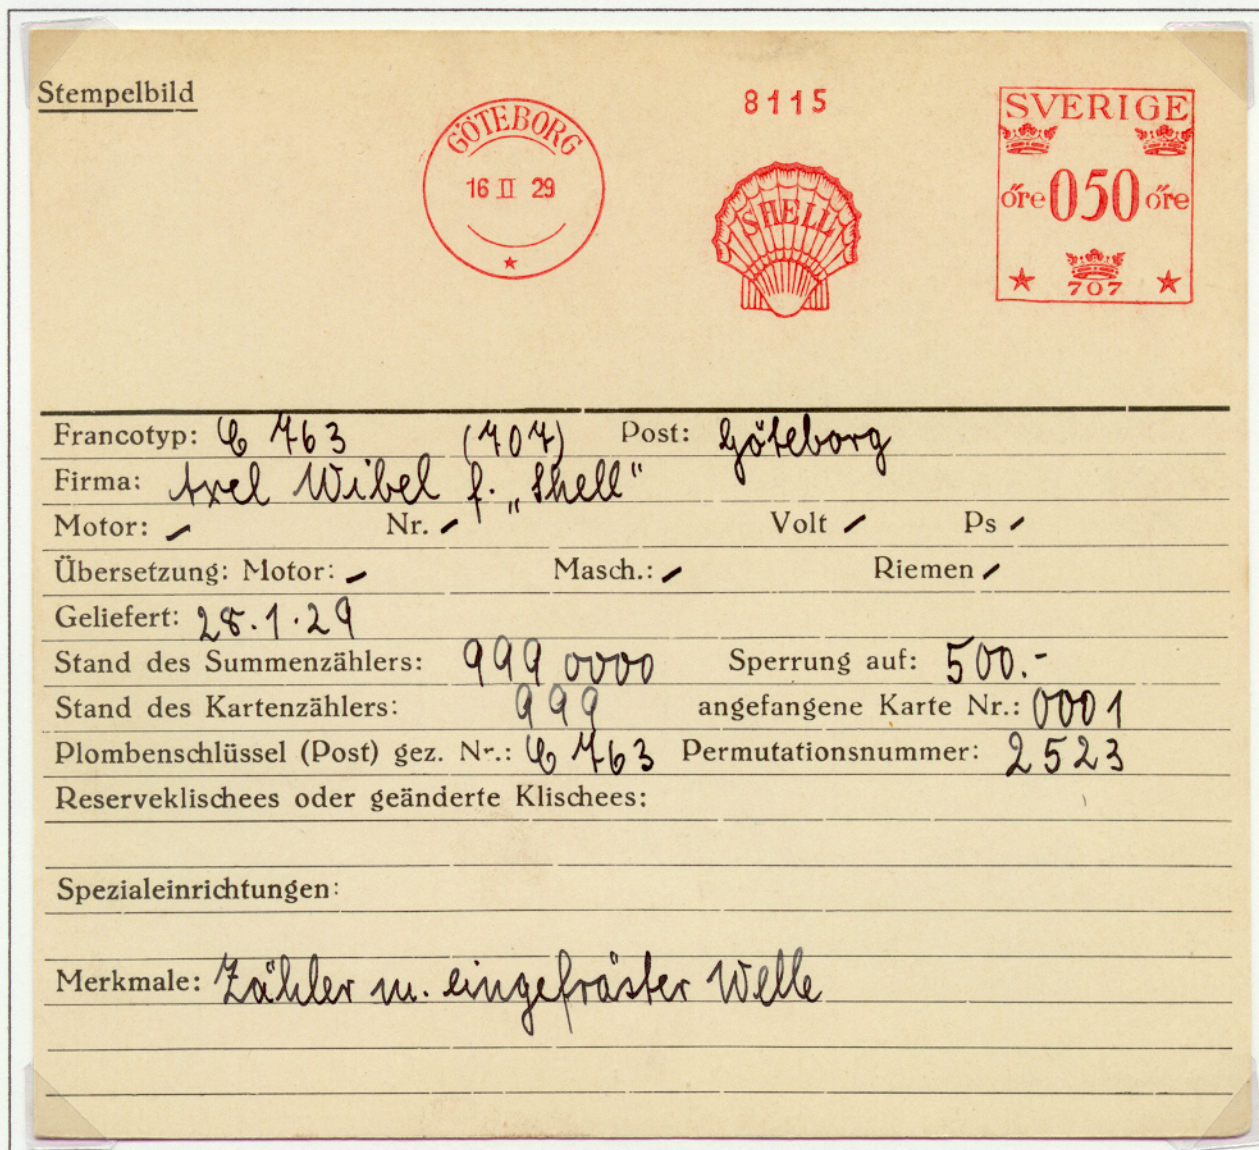 Stempelbild
GÖTEBORG
16 II 29
8115
SHELL
SVERIGE
öre 050 öre
707
Francotyp: C 763 (707) Post: Göteborg
Firma: Axel Wibel f. „Shell“
Motor: – Nr. – Volt – Ps –
Übersetzung: Motor: – Masch.: – Riemen –
Geliefert: 28.1.29
Stand des Summenzählers: 999 0000 Sperrung auf: 500.-
Stand des Kartenzählers: 999 angefangene Karte Nr.: 0001
Plombenschlüssel (Post) gez. Nr.: C 763 Permutationsnummer: 2523
Reserveklischees oder geänderte Klischees:
Spezialeinrichtungen:
Merkmale: Zähler m. eingefräster Welle